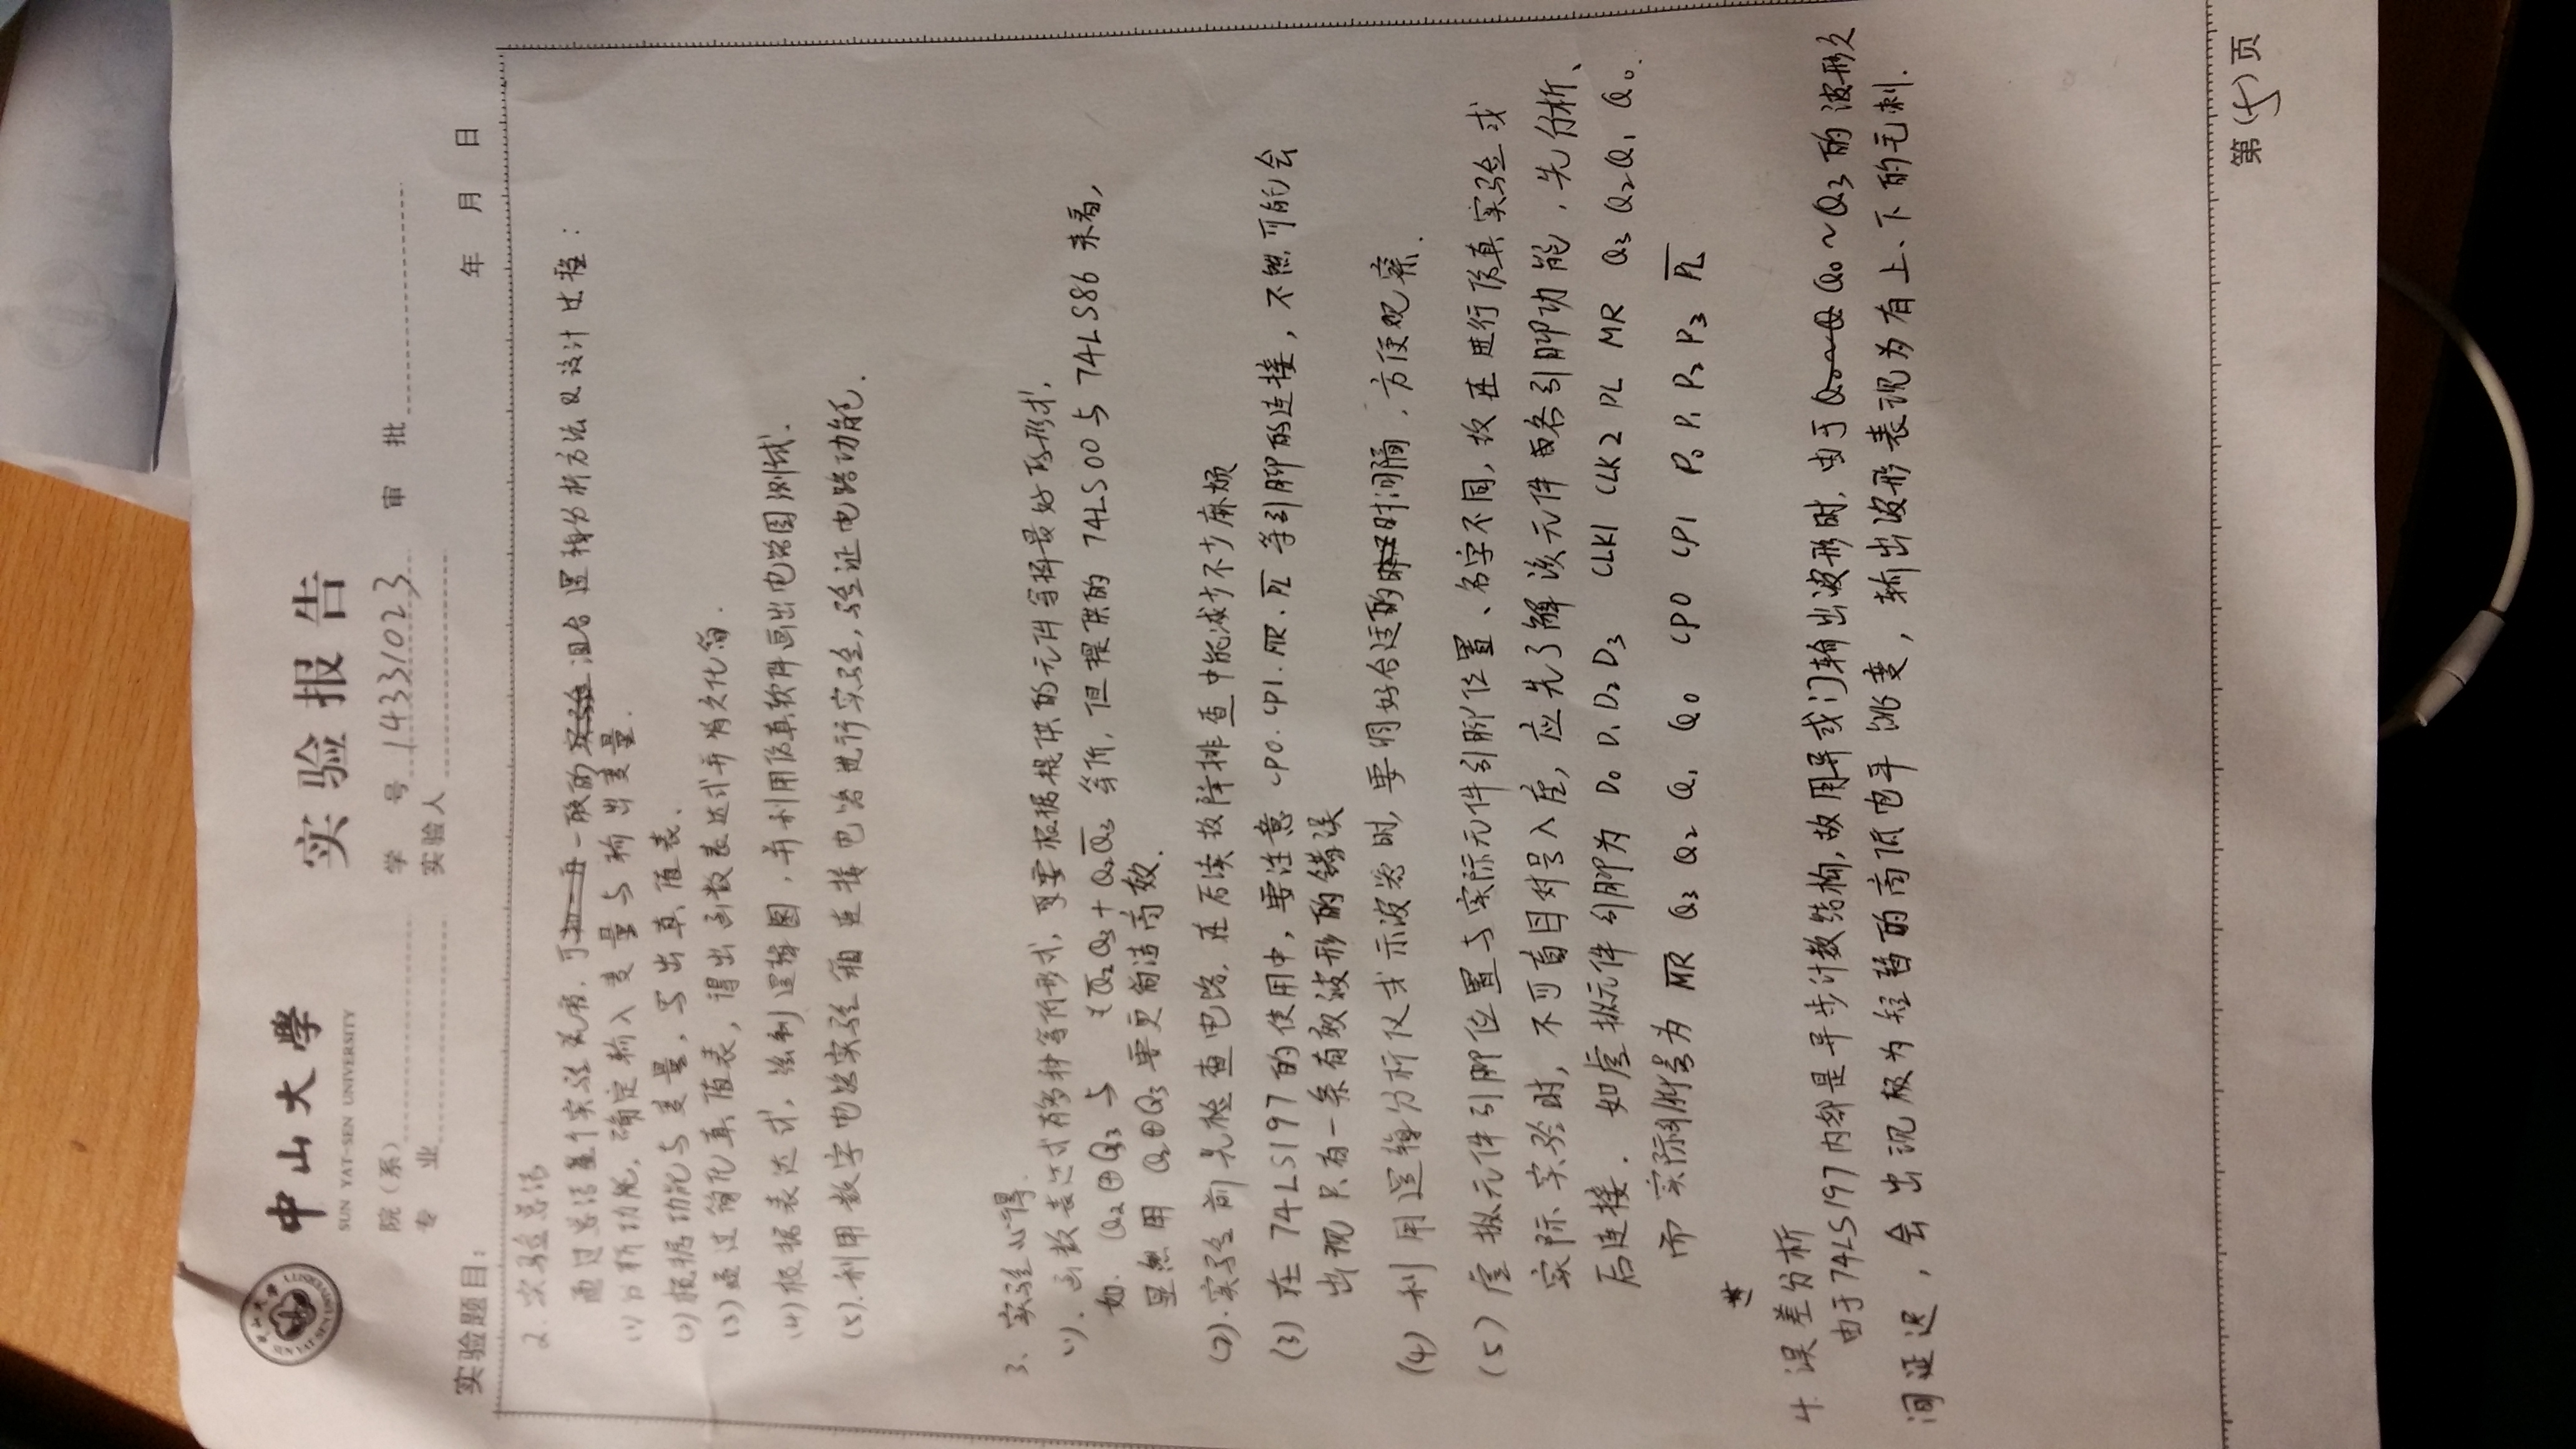 中山大學 实验报告
SUN YAT-SEN UNIVERSITY
院（系） 学 号 14331023 审 批
专 业 实验人
实验题目： 年 月 日
2. 实验总结
通过总结整个实验流程，可一般的组合逻辑分析方法及设计过程：
(1) 分析功能，确定输入变量与输出变量.
(2) 根据功能与变量，写出真值表.
(3) 通过简化真值表，得出函数表达式并将之化简.
(4) 根据表达式，绘制逻辑图，并利用仿真软件画出电路图测试.
(5). 利用数字电路实验箱连接电路进行实验，验证电路功能.
3、实验心得.
(1). 函数表达式有多种等价形式，要根据提供的元件选择最好的形式，
如. Q₂⊕Q₃ 与 Q̅₂Q₃ + Q₂Q̅₃ 等价，但提供的 74LS00与 74LS86 来看，
显然用 Q₂⊕Q₃ 要更简洁高效.
(2). 实验前先检查电路，在后续故障排查中能减少不少麻烦
(3) 在 74LS197 的使用中，要注意 CP0. CP1. M̅R̅. P̅L̅ 等引脚的连接，不然可能会
出现只有一条有效波形的错误
(4) 利用逻辑分析仪或示波器时，要调好合适的时间间隔，方便观察.
(5) 虚拟元件引脚位置与实际元件引脚位置、名字不同，故在进行仿真实验或
实际实验时，不可盲目对号入座，应先了解该元件各引脚功能，先分析、
后连接. 如虚拟元件引脚为 D₀ D₁ D₂ D₃ CLK1 CLK2 PL MR Q₃ Q₂ Q₁ Q₀.
而实际引脚为 M̅R̅ Q₃ Q₂ Q₁ Q₀ CP0 CP1 P₀ P₁ P₂ P₃ P̅L̅
4. 误差分析
由于74LS197内部是异步计数结构，故用异或门输出波形时，由于 Q₀~Q₃ 的波形之
间延迟，会出现极为短暂的高低电平跳变，输出波形表现为有上、下的毛刺.
第(5)页